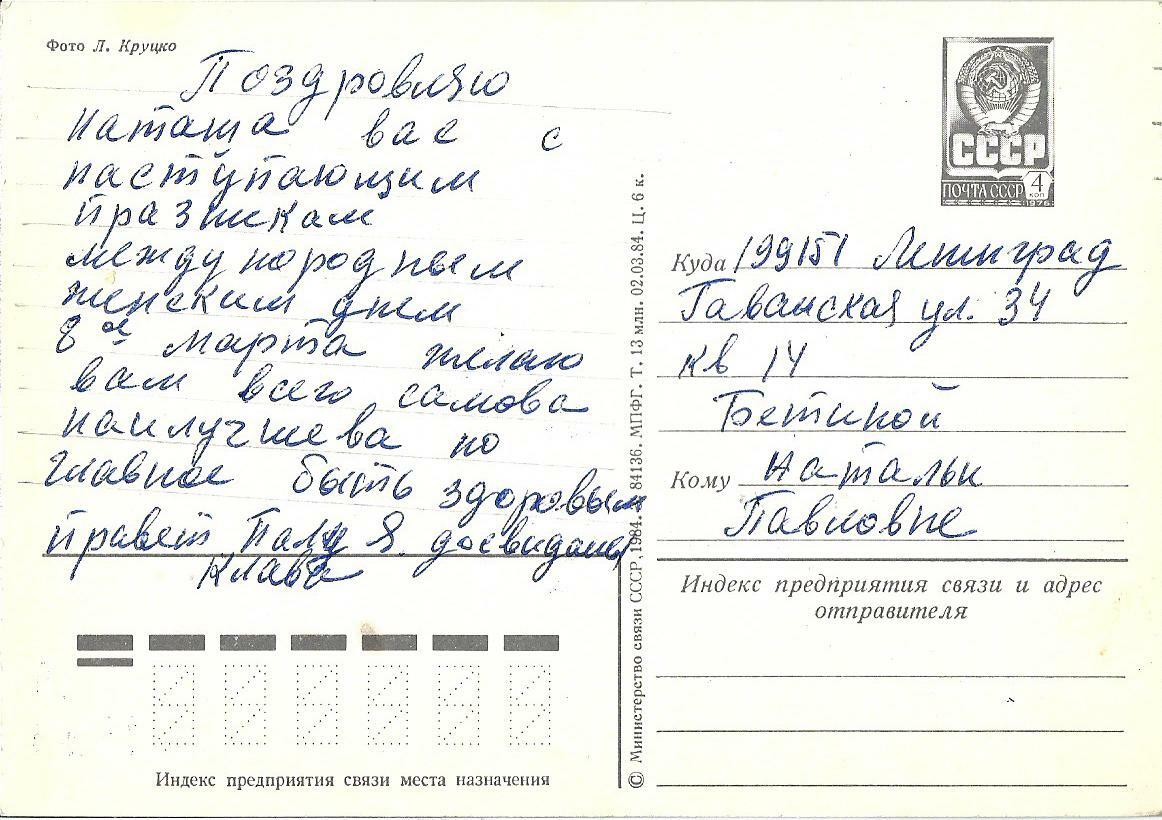 Фото Л. Круцко
Поздровляю
Наташа вас с
наступающим
празникам
международным
женским днем
8 ое марта желаю
вам всего самова
наилучшева но
главное быть здоровым
правет Палу Я. досвидание
Клава
Индекс предприятия связи места назначения
© Министерство связи СССР, 1984. 84136. МПФГ. Т. 13 млн. 02.03.84. Ц. 6 к.
СССР
ПОЧТА СССР 4 коп
1976
Куда 199151 Ленинград
Гаванская ул. 34
кв 14
Бетиной
Кому Натальи
Павловне
Индекс предприятия связи и адрес
отправителя